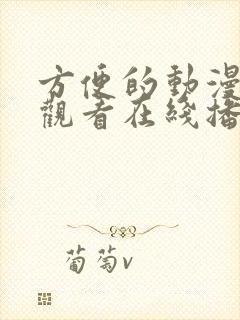 方便的動漫
觀看在綫播
葡萄v